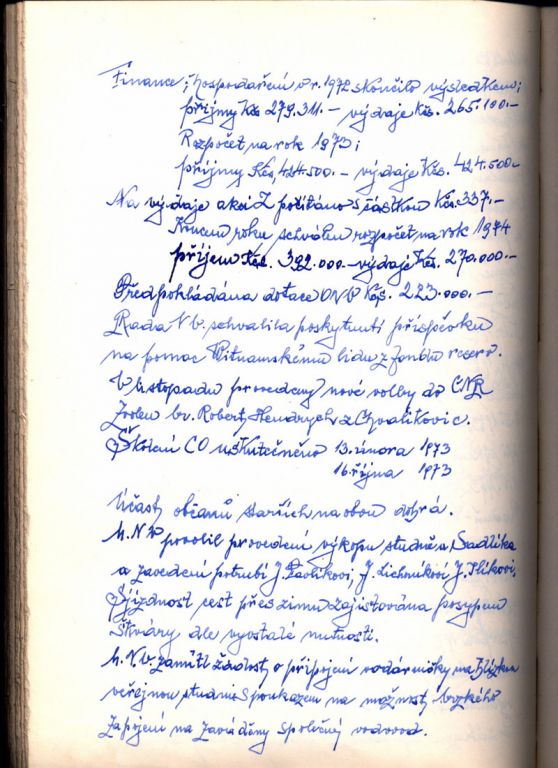 Finance; hospodaření v r. 1972 skončilo výsledkem;
příjmy Kčs 279.311.- výdaje Kčs. 265.100.-
Rozpočet na rok 1973;
příjmy Kčs, 424.500.- výdaje Kčs. 424.500-
Na výdaje akcí Z počítáno s částkou Kčs. 337.-
Koncem roku schválen rozpočet na rok 1974
příjem Kčs. 392.000.- výdaje Kčs. 270.000.-
Předpokládána dotace ONV Kčs. 223.000.-
Rada NV. schvalila poskytnutí příspěvku
na pomoc Vitnamskému lidu z fondu reserv.
V listopadu provedeny nové volby do ČNR
Zvolen bv. Robert, Hendrych z Chvalikovic.
Školení CO uskutečněno 13. února 1973
16 října 1973
Účast občanů starších na obou dobrá.
M.NV povolil provedení výkopu studně u Sadlíka
a zavedení potrubí J. Pavlíkovi, J. Lichnikovi J.
Sjízdnost cest přes zimu zajistována posypem
Škváry dle vyvstalé nutnosti.
M.N.V. zamítl žádost o připojení vodárničky na blízkou
veřejnou studni s poukazem na možnost brzkého
zapojení na zaváděný společný vodovod.